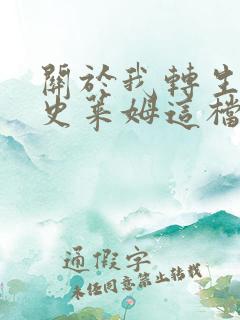 關於我轉生
史萊姆這檔
通假字
未經同意禁止轉載